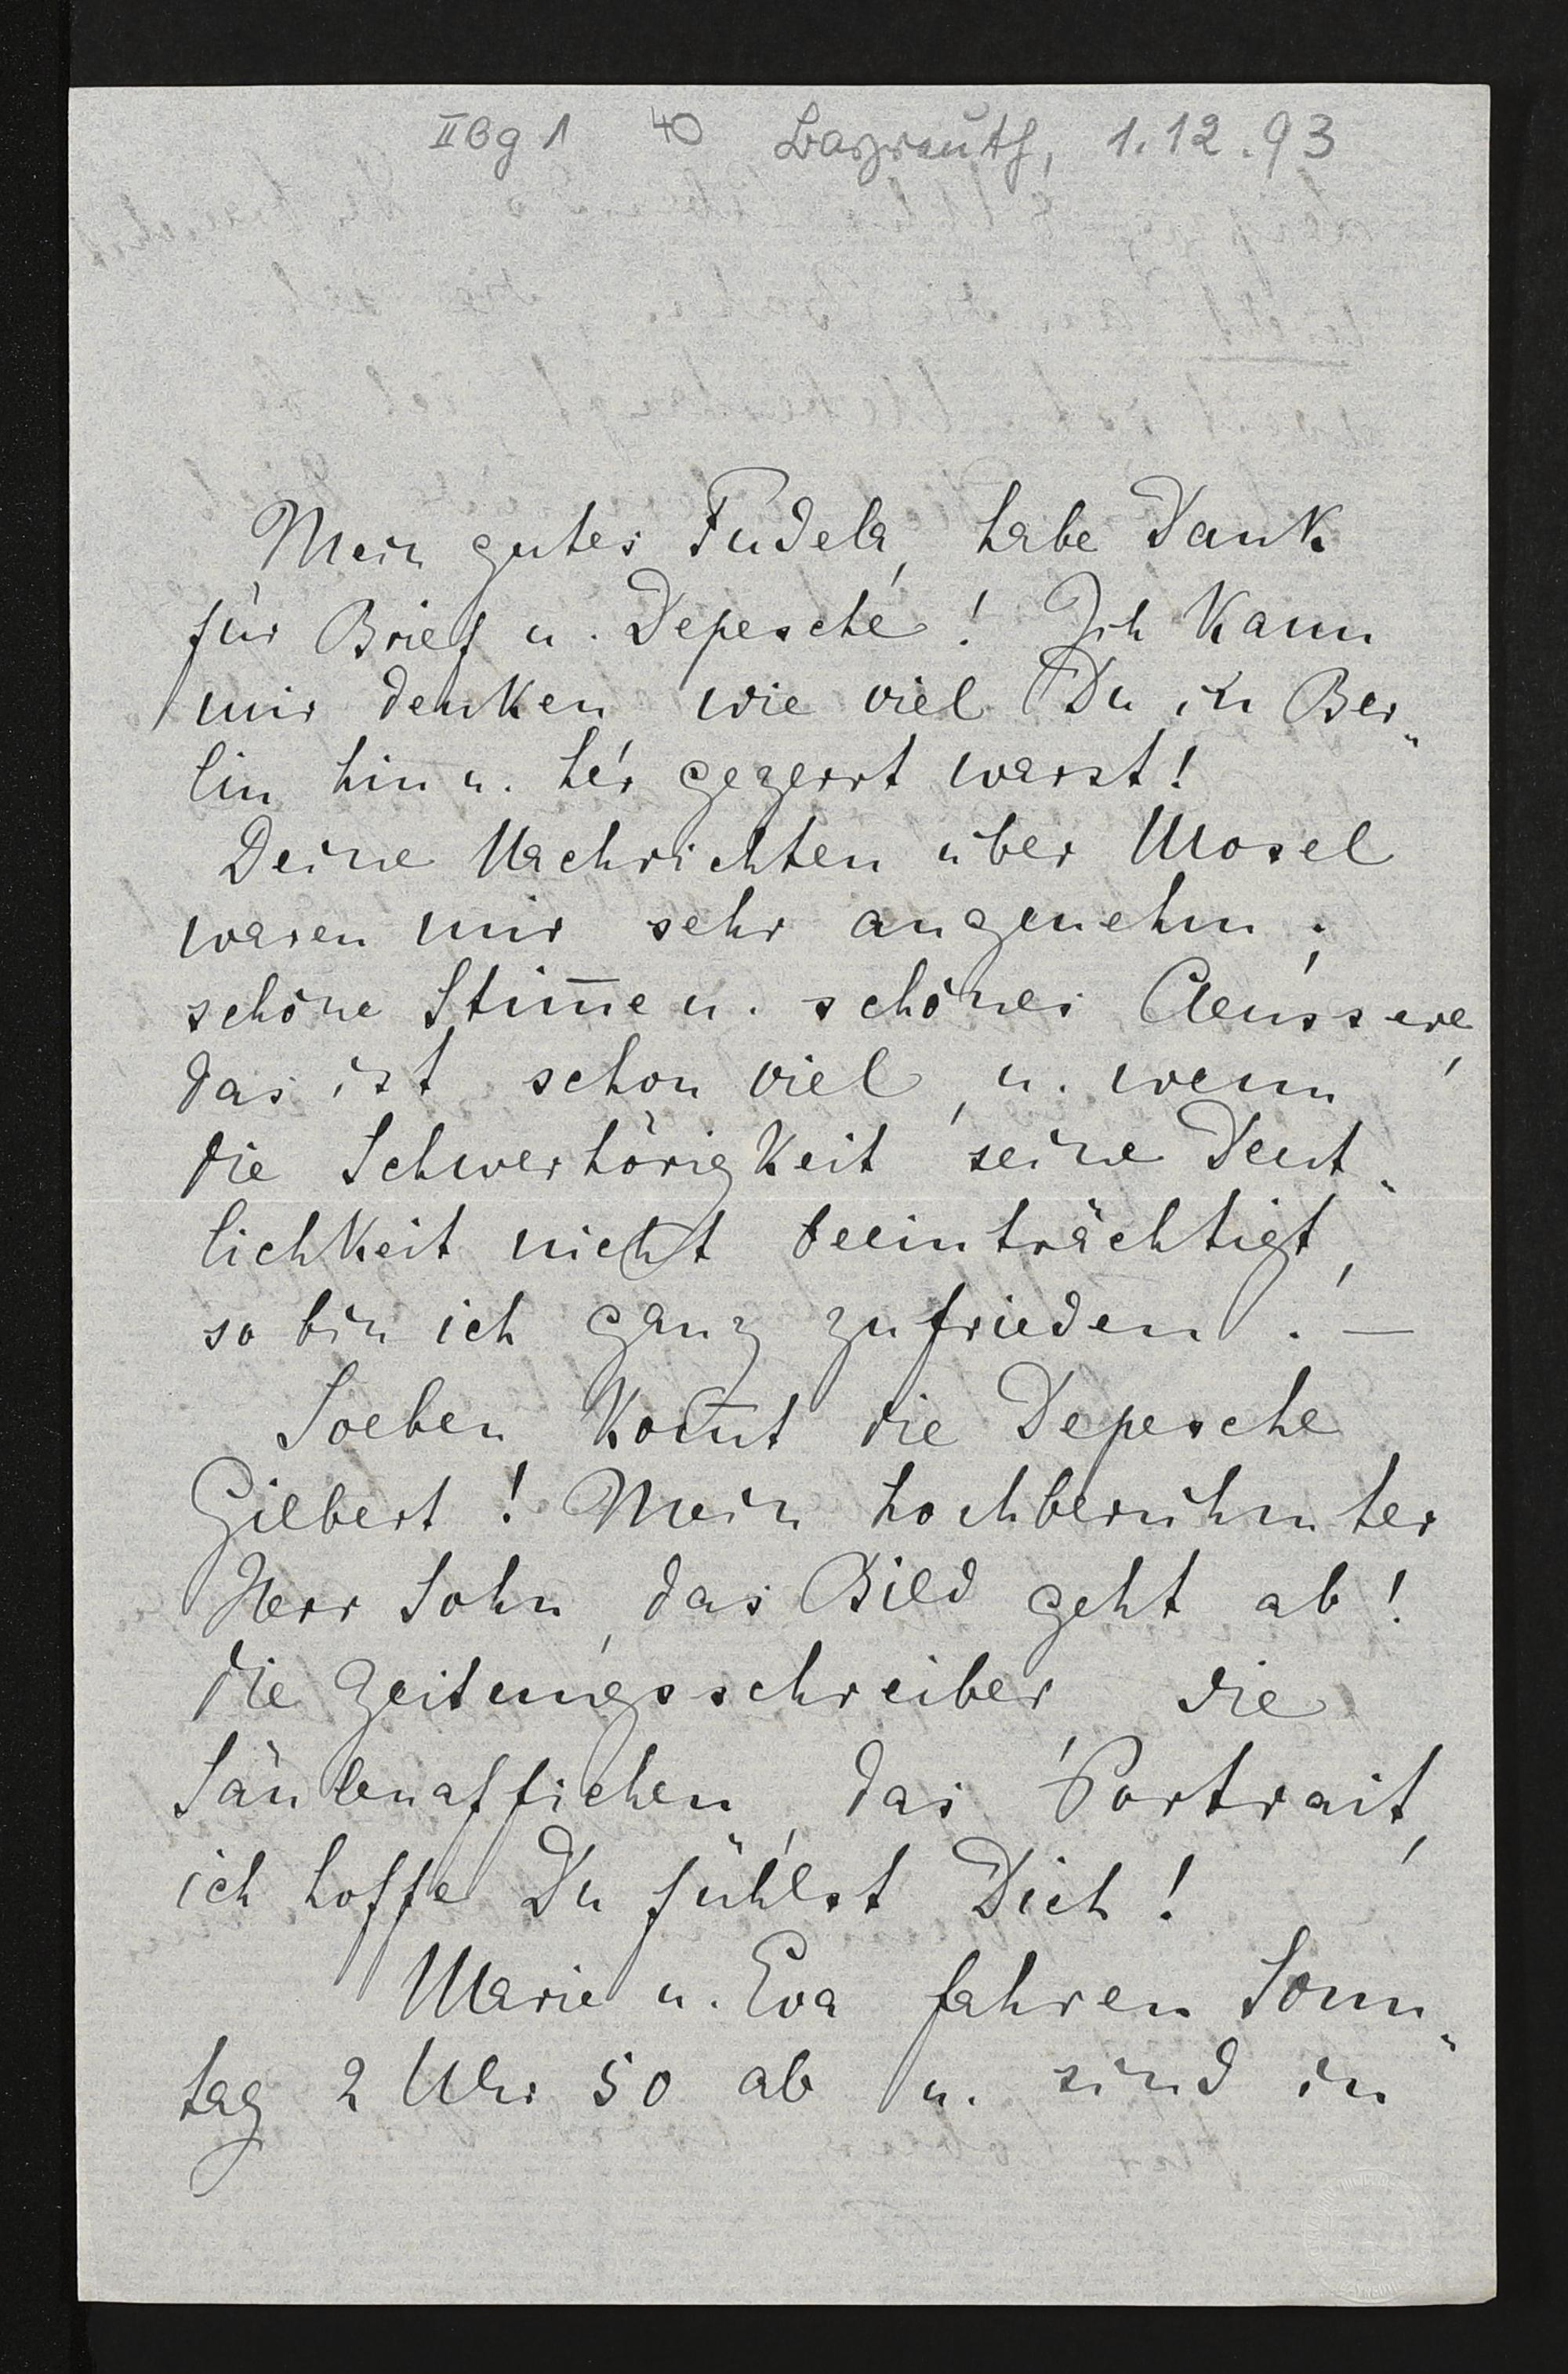 II Bg 1 40 Bayreuth, 1.12.93
Mein gutes Fudela, habe Dank
für Brief u. Depesche! Ich kann
mir denken wie viel Du in Ber„
lin hin u. her gezerrt warst!
Deine Nachrichten über Mosel
waren mir sehr angenehm;
schöne Stim̅e u. schönes Aeussere,
das ist schon viel, u. wenn
die Schwerhörigkeit seine Deut„
lichkeit nicht beeinträchtigt,
so bin ich ganz zufrieden. —
Soeben kom̅t die Depesche
Gilbert! Mein hochberühmter
Herr Sohn, das Bild geht ab!
die Zeitungsschreiber, die
Säulenaffichen, das Portrait,
ich hoffe Du fühlst Dich!
Marie u. Eva fahren Sonn„
tag 2 Uhr 50 ab u. sind in